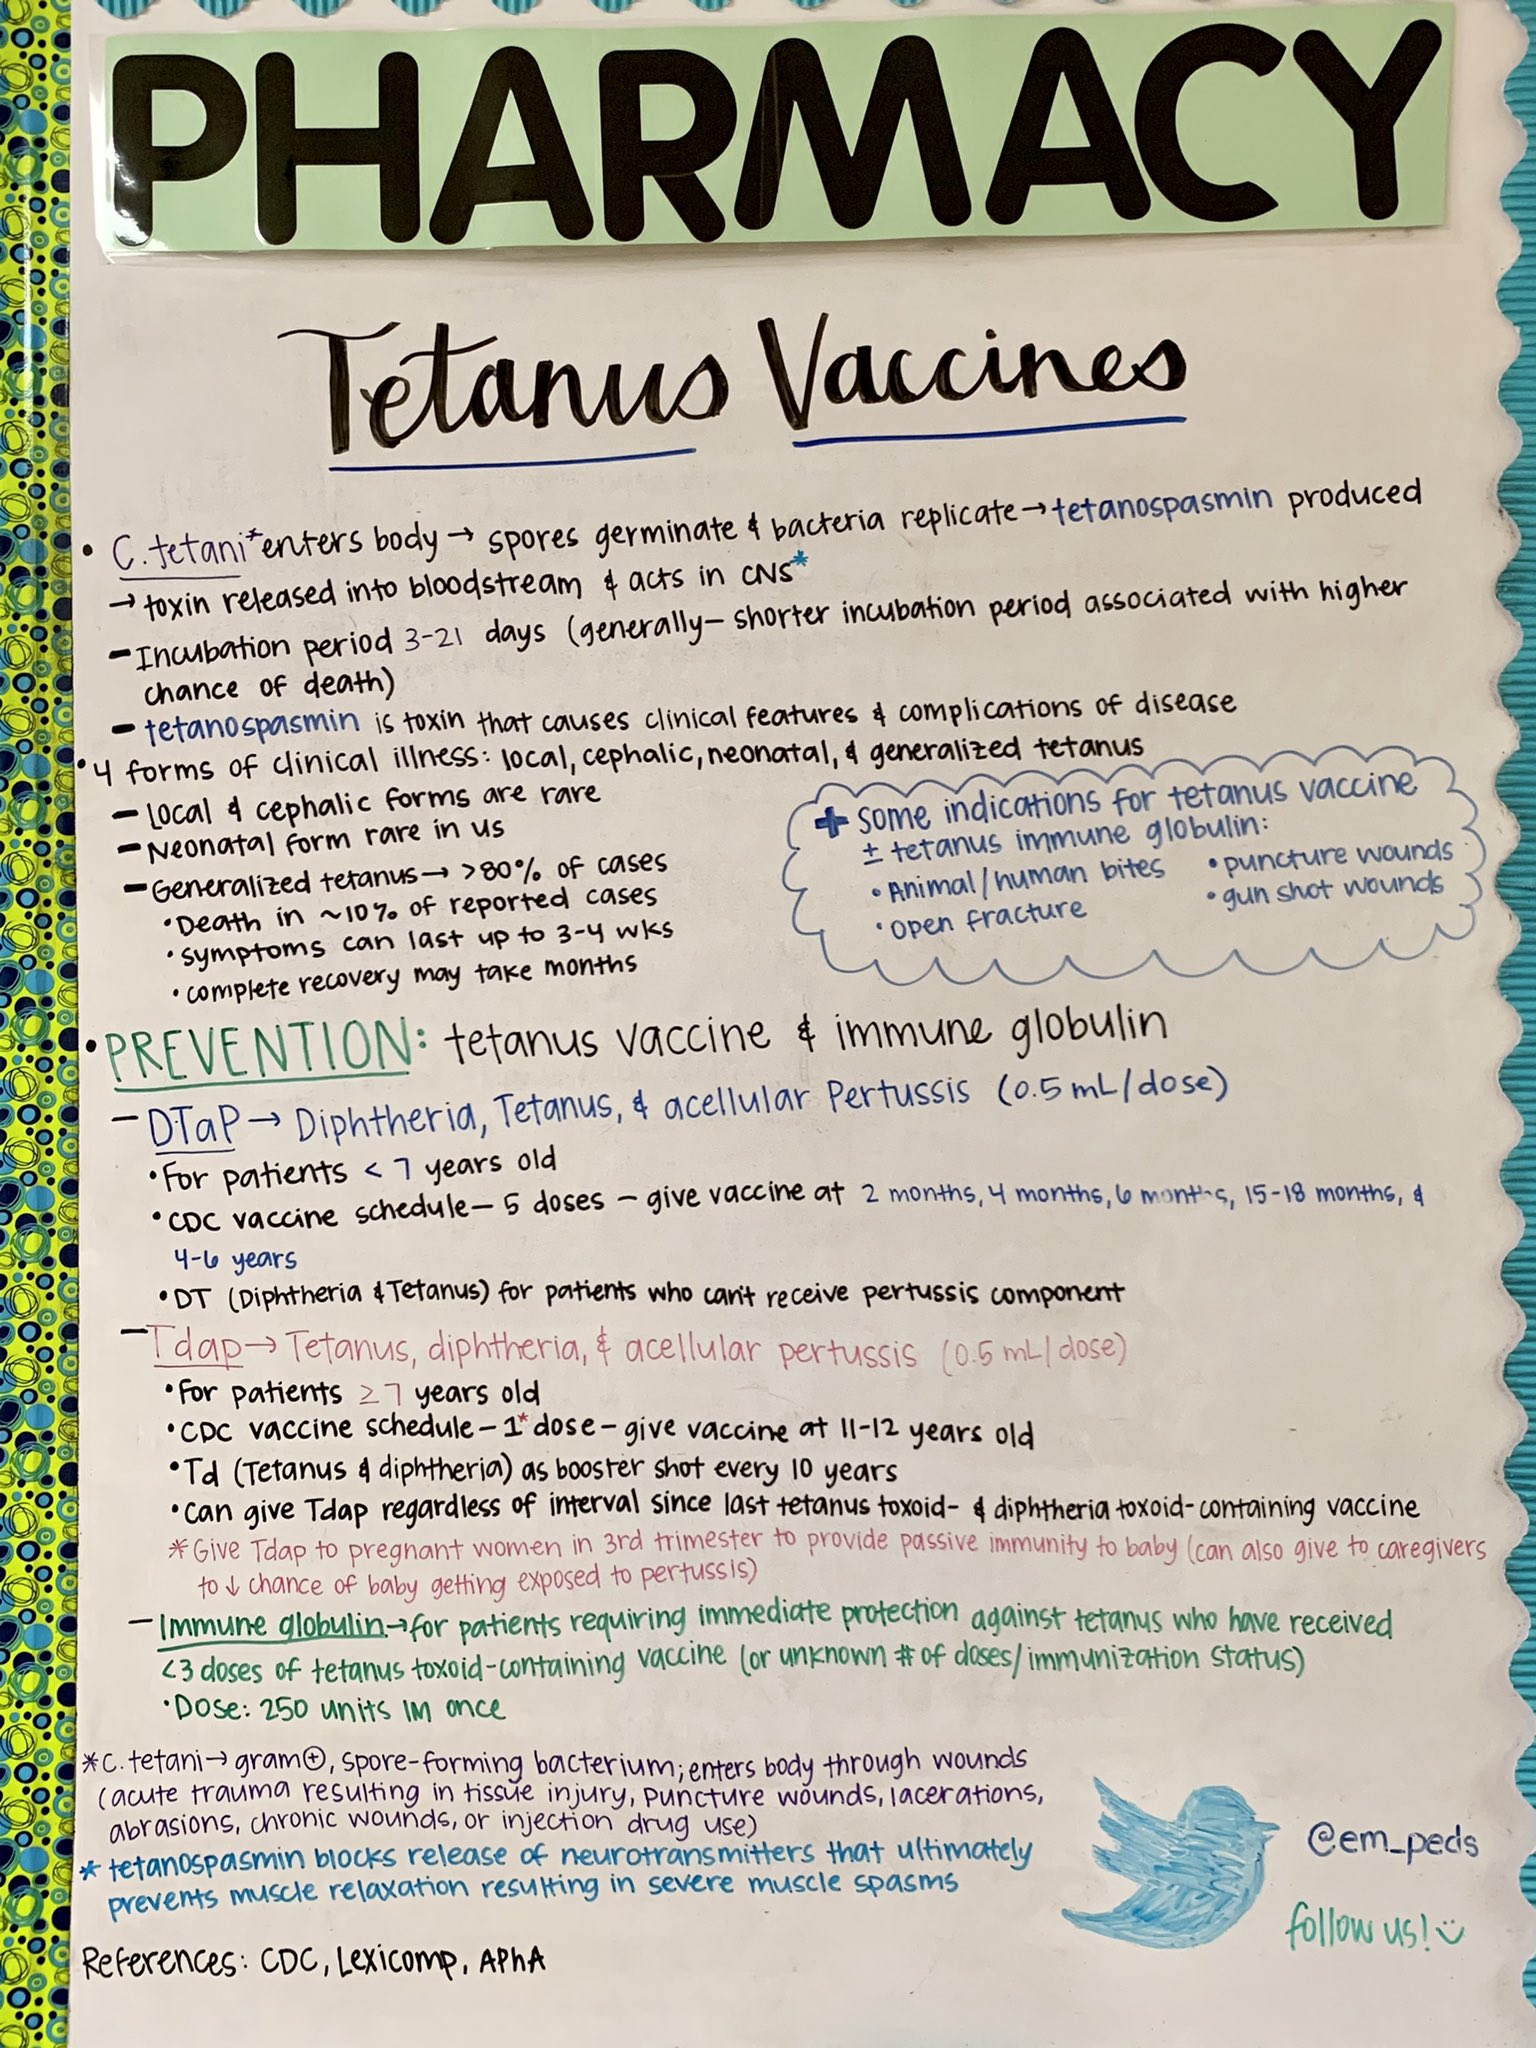 PHARMACY
Tetanus Vaccines
• C. tetani* enters body → spores germinate & bacteria replicate → tetanospasmin produced
→ toxin released into bloodstream & acts in CNS*
- Incubation period 3-21 days (generally - shorter incubation period associated with higher
chance of death)
- tetanospasmin is toxin that causes clinical features & complications of disease
• 4 forms of clinical illness: local, cephalic, neonatal, & generalized tetanus
- Local & cephalic forms are rare
- Neonatal form rare in US
- Generalized tetanus → >80% of cases
• Death in ~10% of reported cases
• symptoms can last up to 3-4 wks
• complete recovery may take months
+ Some indications for tetanus vaccine
± tetanus immune globulin:
• Animal/human bites • puncture wounds
• open fracture • gun shot wounds
• PREVENTION: tetanus vaccine & immune globulin
- DTaP → Diphtheria, Tetanus, & acellular Pertussis (0.5 mL/dose)
• For patients < 7 years old
• CDC vaccine schedule - 5 doses - give vaccine at 2 months, 4 months, 6 months, 15-18 months, &
4-6 years
• DT (Diphtheria & Tetanus) for patients who can't receive pertussis component
- Tdap → Tetanus, diphtheria, & acellular pertussis (0.5 mL/dose)
• For patients ≥ 7 years old
• CDC vaccine schedule - 1* dose - give vaccine at 11-12 years old
• Td (Tetanus & diphtheria) as booster shot every 10 years
• Can give Tdap regardless of interval since last tetanus toxoid- & diphtheria toxoid-containing vaccine
* Give Tdap to pregnant women in 3rd trimester to provide passive immunity to baby (can also give to caregivers
to ↓ chance of baby getting exposed to pertussis)
- Immune globulin → for patients requiring immediate protection against tetanus who have received
<3 doses of tetanus toxoid-containing vaccine (or unknown # of doses/immunization status)
• Dose: 250 units IM once
* C. tetani → gram ⊕, spore-forming bacterium; enters body through wounds
(acute trauma resulting in tissue injury, puncture wounds, lacerations,
abrasions, chronic wounds, or injection drug use)
* tetanospasmin blocks release of neurotransmitters that ultimately
prevents muscle relaxation resulting in severe muscle spasms
References: CDC, Lexicomp, APhA
@em_peds
follow us! :)